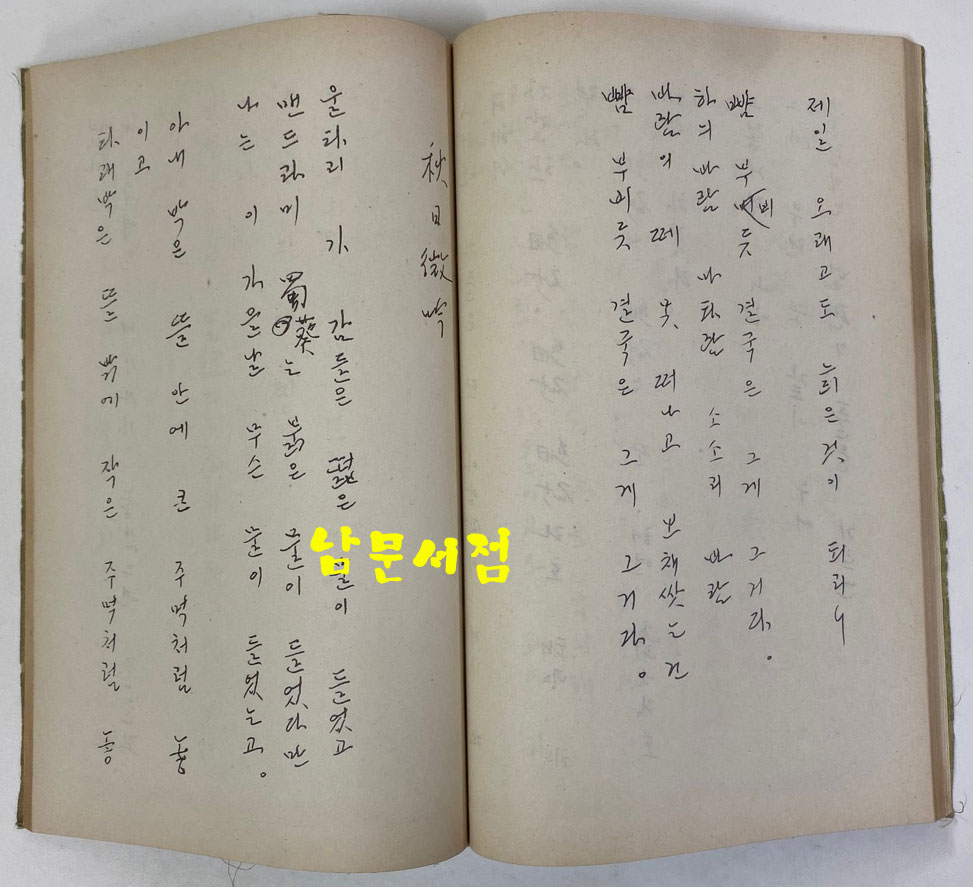 제일 오래고도 늬은것이 되리니
뺨 부비듯 결국은 그게 그거라.
하늬 바람 마타람 소소리 바람
바람의 떼 못 떠나고 보채쌋는 건
뺨 부비듯 결국은 그게 그거라.
秋日微吟
울타리 가 감들은 떫은 물이 들었고
맨드라미 蜀葵는 붉은 물이 들었다만
나는 이 가을날 무슨 물이 들었는고.
아내 박은 뜰 안에 큰 주먹처럼 놓
이고
타래박은 뜰 밖에 작은 주먹처럼 놓
남문서점